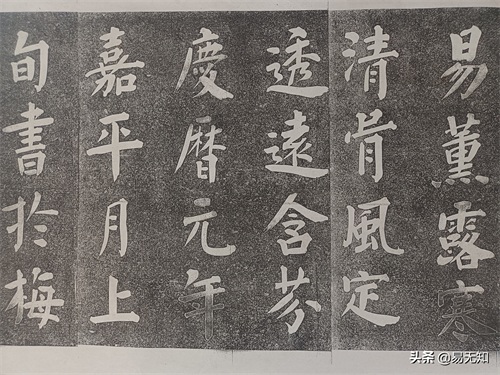 易薰露寒
清骨風定
透遠含芬
慶曆元年
嘉平月上
旬書於梅
头条 @易无知